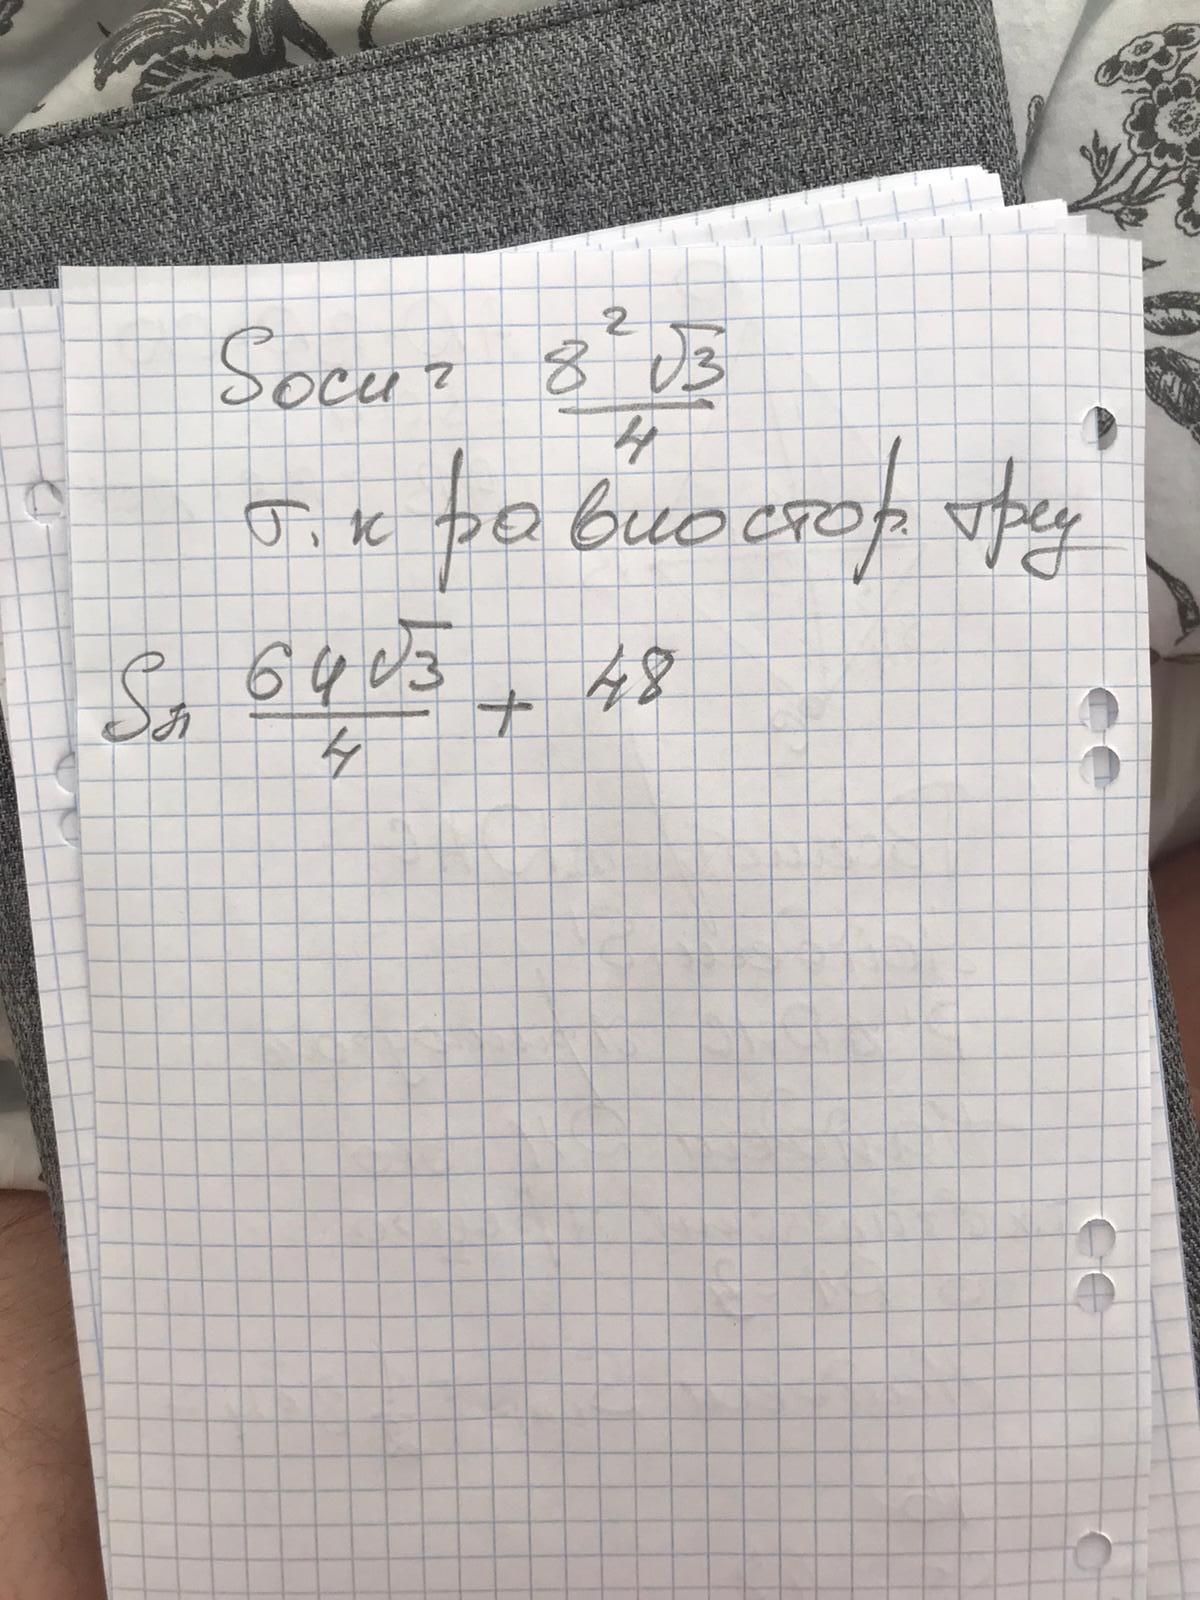 Sосн = 8² √3 / 4
т.к равностор. треу
Sп 64√3 / 4 + 48